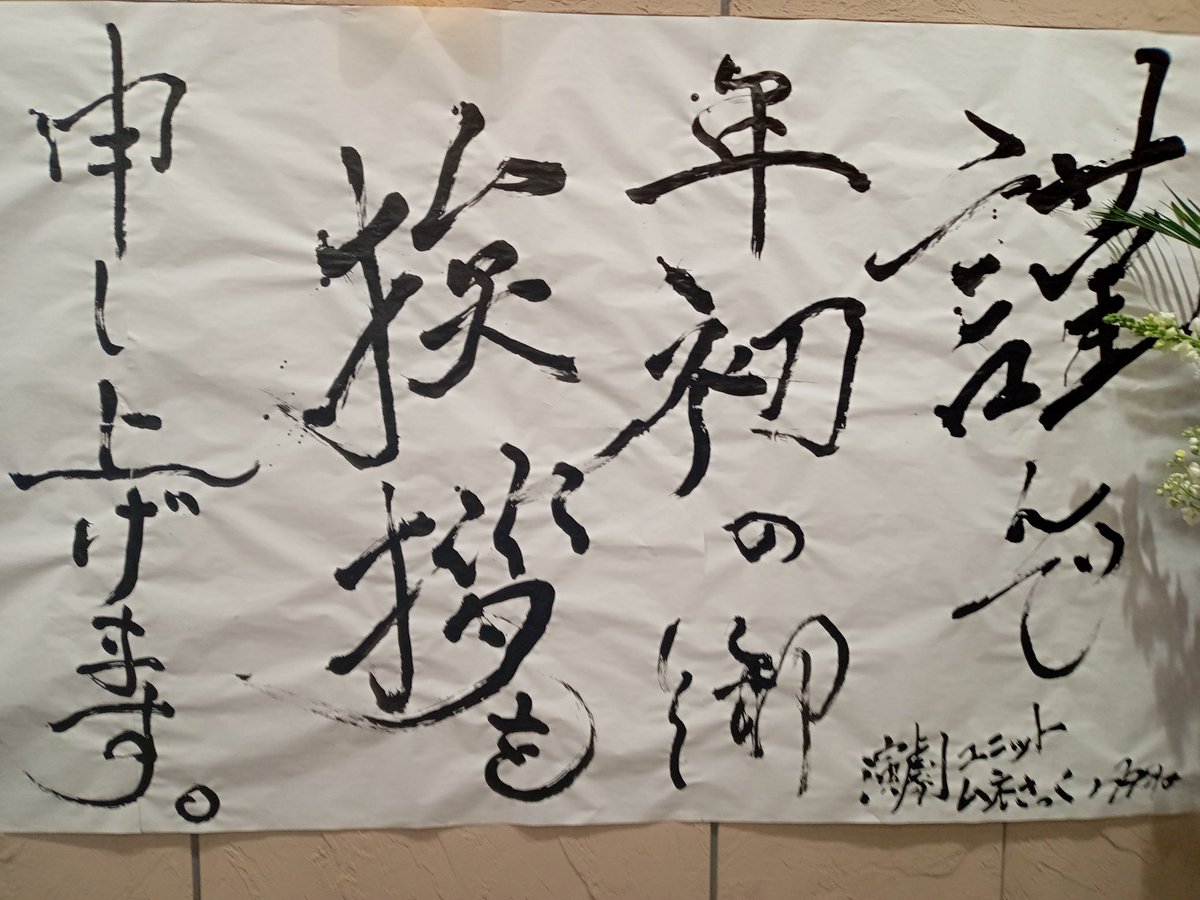 謹んで
年初の御
挨拶を
申し上げます。
演劇ユニット
ムネさっく